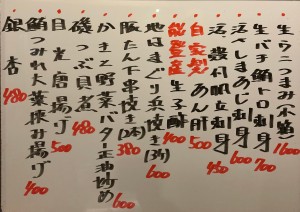 生ウニつまみ(小箱) 1600
生バチ鮪トロ刺 700
活〆しまあじ刺身 600
活〆帆立刺身 450
自家製あん肝 500
能登産生子酢 400
地はまぐり浜焼き(3ヶ) 600
豚たん下串焼き(2本) 380
かきと野菜バター正油炒め 600
磯つぶ貝煮
目光唐揚げ 500
鮪つみれ大葉挟み揚げ 400
銀杏 480